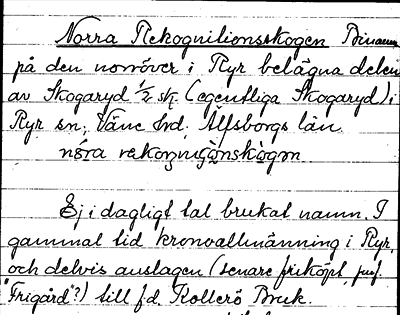 Norra Rekognitionsskogen Binamn
på den norröver i Ryr belägna delen
av Skogaryd 1/2 sk. (egentliga Skogaryd) i
Ryr sn, Väne hd. Älfsborgs län.
nó̄ra
Ej i dagligt tal brukat namn. I
gammal tid kronoallmänning i Ryr,
och delvis anslagen (senare friköpt, jmf.
"Frigård"?) till f.d. Kollerö Bruk.